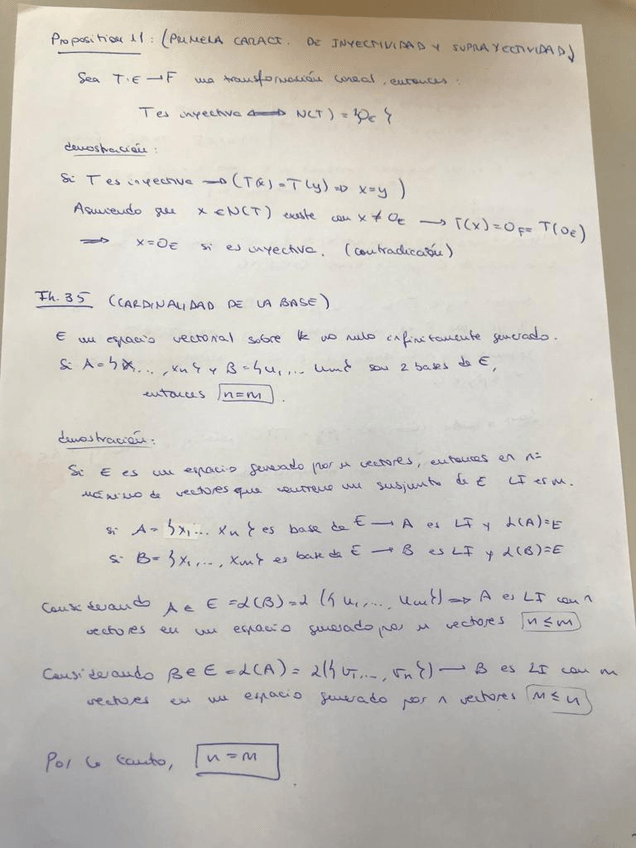 Proposition 11: (PRIMERA CARACT. DE INYECTIVIDAD Y SUPRAYECTIVIDAD)
Sea T: E → F una transformación lineal, entonces:
T es inyectiva ⟺ N(T) = {0E}
demostración:
Si T es inyectiva → (T(x) = T(y) ⇒ x=y)
Asumiendo que x ∈ N(T) existe con x ≠ 0E → T(x) = 0F = T(0E)
⇒ x=0E si es inyectiva. (contradicción)
Th. 35 (CARDINALIDAD DE LA BASE)
E un espacio vectorial sobre K no nulo finitamente generado.
Si A = {x, ..., xn} y B = {u1, ... um} son 2 bases de E,
entonces n=m.
demostración:
Si E es un espacio generado por m vectores, entonces en nº
máximo de vectores que contiene un subjunto de E LI es m.
si A = {x1, ... xn} es base de E → A es LI y L(A)=E
Si B = {x1, ..., xm} es base de E → B es LI y L(B)=E
Considerando A ∈ E = L(B) = L({u1, ..., um}) ⇒ A es LI con n
vectores en un espacio generado por m vectores n ≤ m
Considerando B ∈ E = L(A) = L({v1, ..., vn}) → B es LI con m
vectores en un espacio generado por n vectores m ≤ n
Por lo tanto, n = m